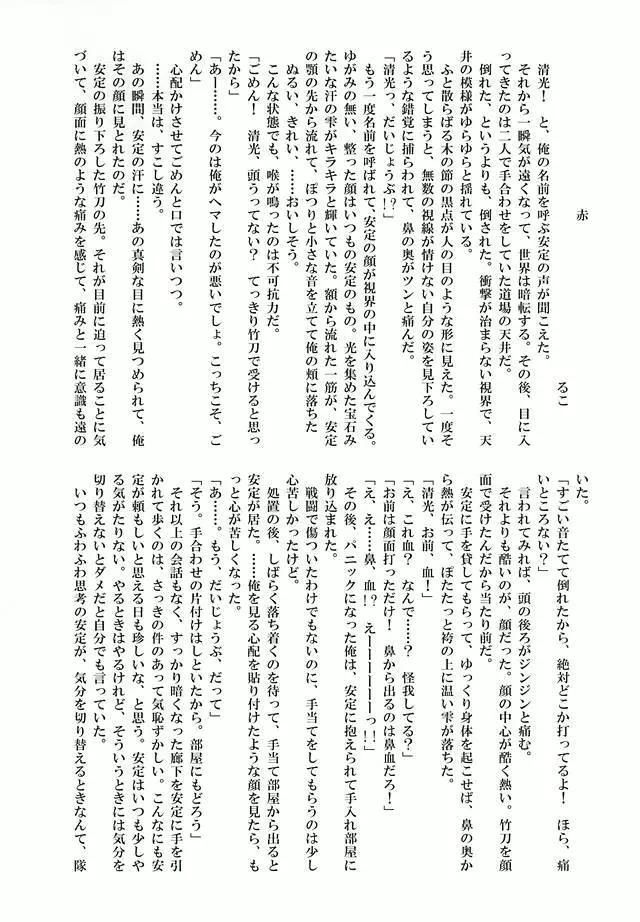 赤
るこ
清光！　と、俺の名前を呼ぶ安定の声が聞こえた。
それから一瞬気が遠くなって、世界は暗転する。その後、目に入
ってきたのは二人で手合わせをしていた道場の天井だ。
倒れた、というよりも、倒された。衝撃が治まらない視界で、天
井の模様がゆらゆらと揺れている。
ふと散らばる木の節の黒点が人の目のような形に見えた。一度そ
う思ってしまうと、無数の視線が情けない自分の姿を見下ろしてい
るような錯覚に捕らわれて、鼻の奥がツンと痛んだ。
「清光っ、だいじょうぶ！？」
もう一度名前を呼ばれて、安定の顔が視界の中に入り込んでくる。
ゆがみの無い、整った顔はいつもの安定のもの。光を集めた宝石み
たいな汗の雫がキラキラと輝いていた。額から流れた一筋が、安定
の顎の先から流れて、ぽつりと小さな音を立てて俺の頬に落ちた
ぬるい、きれい、……おいしそう。
こんな状態でも、喉が鳴ったのは不可抗力だ。
「ごめん！　清光、頭うってない？　てっきり竹刀で受けると思っ
たから」
「あー……。今のは俺がヘマしたのが悪いでしょ。こっちこそ、ご
めん」
心配かけさせてごめんと口では言いつつ。
……本当は、すこし違う。
あの瞬間、安定の汗に……あの真剣な目に熱く見つめられて、俺
はその顔に見とれたのだ。
安定の振り下ろした竹刀の先。それが目前に迫って居ることに気
づいて、顔面に熱のような痛みを感じて、痛みと一緒に意識も遠の
いた。
「すごい音たてて倒れたから、絶対どこか打ってるよ！　ほら、痛
いところない？」
言われてみれば、頭の後ろがジンジンと痛む。
それよりも酷いのが、顔だった。顔の中心が酷く熱い。竹刀を顔
面で受けたんだから当たり前だ。
安定に手を貸してもらって、ゆっくり身体を起こせば、鼻の奥か
ら熱が伝って、ぽたたっと袴の上に温い雫が落ちた。
「清光、お前、血！」
「え、これ血？　なんで……？　怪我してる？」
「お前は顔面打っただけ！　鼻から出るのは鼻血だろ！」
「え、え……鼻、血！？　えーーーーーっ！！」
その後、パニックになった俺は、安定に抱えられて手入れ部屋に
放り込まれた。
戦闘で傷ついたわけでもないのに、手当てをしてもらうのは少し
心苦しかったけど。
処置の後、しばらく落ち着くのを待って、手当て部屋から出ると
安定が居た。……俺を見る心配を貼り付けたような顔を見たら、も
っと心が苦しくなった。
「あ……。もう、だいじょうぶ、だって」
「そう。手合わせの片付けはしといたから。部屋にもどろう」
それ以上の会話もなく、すっかり暗くなった廊下を安定に手を引
かれて歩くのは、さっきの件のあって気恥ずかしい。こんなにも安
定が頼もしいと思える日も珍しいな、と思う。安定はいつも少しや
る気がたりない。やるときはやるけれど、そういうときには気分を
切り替えないとダメだと自分でも言っていた。
いつもふわふわ思考の安定が、気分を切り替えるときなんて、隊